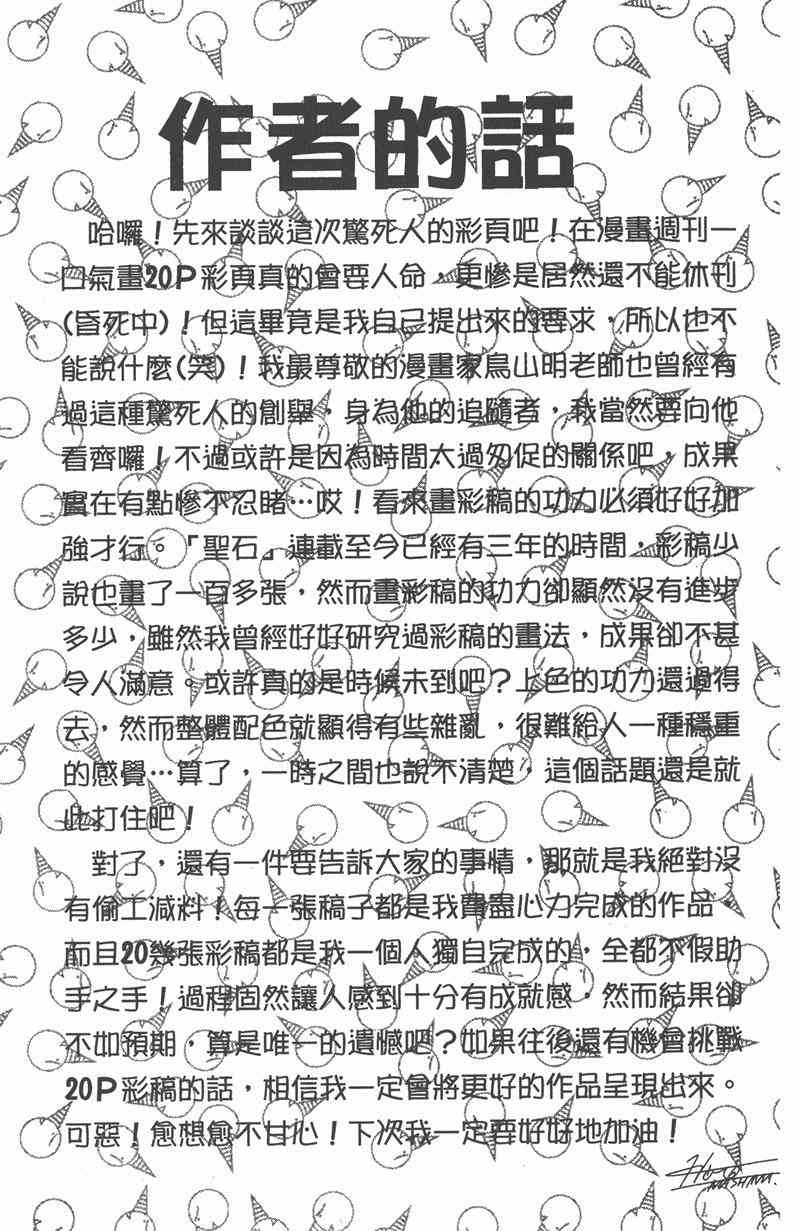 作者的話
哈囉！先來談談這次驚死人的彩頁吧！在漫畫週刊一
口氣畫20P彩頁真的會要人命，更慘是居然還不能休刊
(昏死中)！但這畢竟是我自己提出來的要求，所以也不
能說什麼(笑)！我最尊敬的漫畫家鳥山明老師也曾經有
過這種驚死人的創舉，身為他的追隨者，我當然要向他
看齊囉！不過或許是因為時間太過匆促的關係吧，成果
實在有點慘不忍睹…哎！看來畫彩稿的功力必須好好加
強才行。「聖石」連載至今已經有三年的時間，彩稿少
說也畫了一百多張，然而畫彩稿的功力卻顯然沒有進步
多少，雖然我曾經好好研究過彩稿的畫法，成果卻不甚
令人滿意。或許真的是時候未到吧？上色的功力還過得
去，然而整體配色就顯得有些雜亂，很難給人一種穩重
的感覺…算了，一時之間也說不清楚，這個話題還是就
此打住吧！
對了，還有一件要告訴大家的事情，那就是我絕對沒
有偷工減料！每一張稿子都是我費盡心力完成的作品
而且20幾張彩稿都是我一個人獨自完成的，全都不假助
手之手！過程固然讓人感到十分有成就感，然而結果卻
不如預期，算是唯一的遺憾吧？如果往後還有機會挑戰
20P彩稿的話，相信我一定會將更好的作品呈現出來。
可惡！愈想愈不甘心！下次我一定要好好地加油！